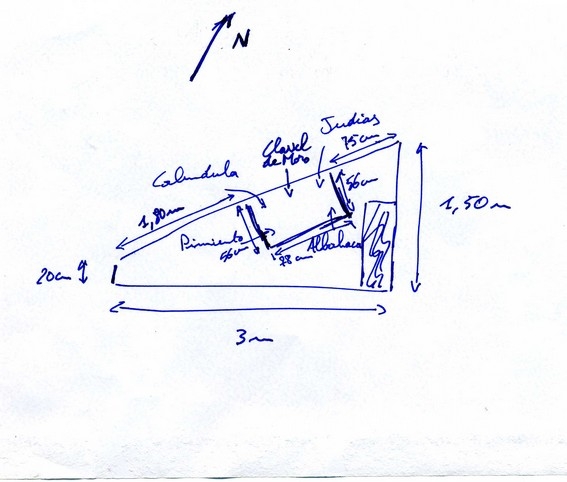 N
Judías
75cm
Clavel
de Moro
Calendula
56cm
1,80m
1,50m
Pimiento
56cm
Albahaca
78cm
20cm
3m